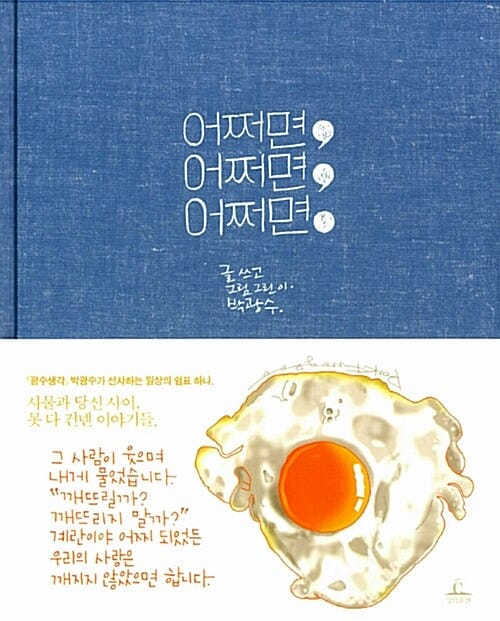 어쩌면,
어쩌면,
어쩌면.
글 쓰고
그림 그린 이.
박광수.
『광수생각』 박광수가 선사하는 일상의 쉼표 하나.
사물과 당신 사이,
못 다 건넨 이야기들.
그 사람이 웃으며
내게 물었습니다.
"깨뜨릴까?
깨뜨리지 말까?"
계란이야 어찌 되었든
우리의 사랑은
깨지지 않았으면 합니다.